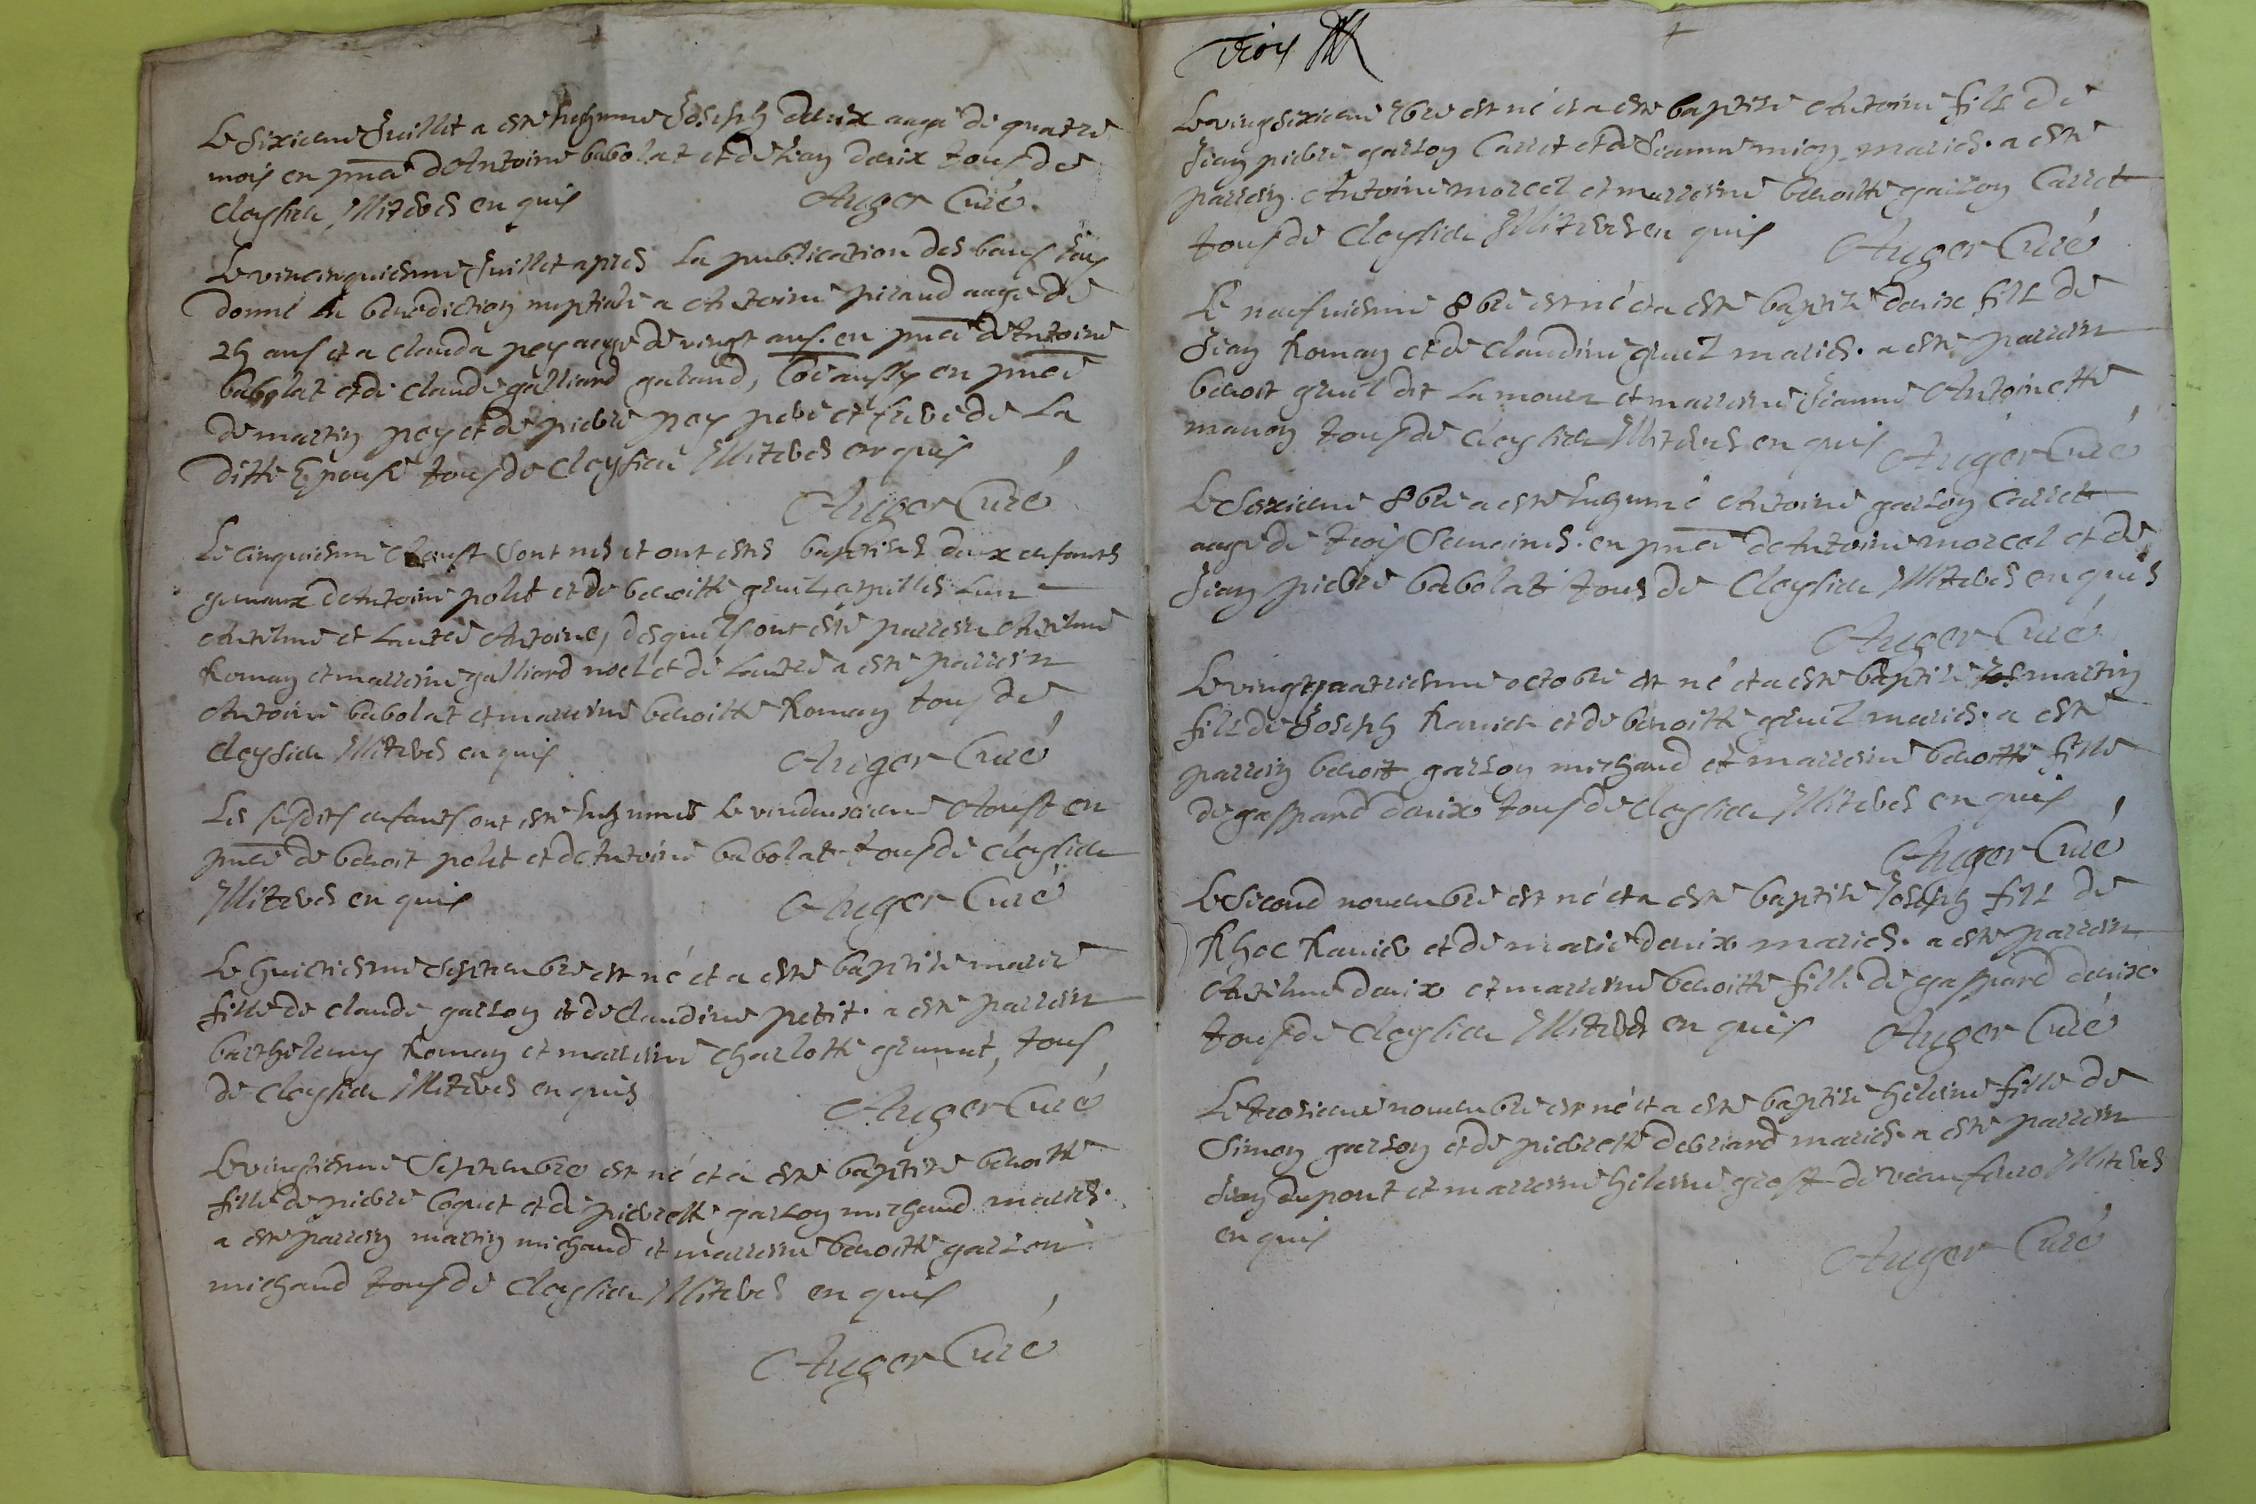 Le sixieme Juillet a este Inhumé Joseph deuix aage de quatre
mois en pnce d'Antoine babolat et de Jean deuix tous de
Cleysieu Illiteres enquis
Auger Curé
Le vincinquiesme Juillet apres La publication des bans Jay
donné La benediction nuptiale a Antoine piraud aage de
25 ans et a Clauda pey aage de vingt ans. en pnce d'Antoine
babolat et de Claude galliard galand, Coe aussy en pnce
de martin pey et de pierre pey pere et frere de La
ditte Epouse tous de Cleysieu Illiteres enquis
Auger Curé
Le cinquiesme Aoust sont nes et ont estes baptises deux enfants
gemeaux d'Antoine polet et de benoitte gruil, appelles Lun
Antelme et Lautre Antoine, desquels ont esté parrein Antelme
Romay et marreine galliard noel et de Lautre a esté parrein
Antoine babolat et marreine benoitte Romay tous de
Cleysieu Illiteres enquis
Auger Curé
Les susdits enfants ont este Inhumes Le vindeuxieme Aoust en
pnce de benoit polet et d'Antoine babolat tous de Cleysieu
Illiteres enquis
Auger Curé
Le huictiesme Septembre est né et a esté baptisée marie
fille de Claude garson et de Claudine petit. a esté parrein
barthelemy Romay et marreine Charlotte grumet, tous
de Cleysieu Illiteres enquis
Auger Curé
Le vingtiesme Septembre est né et a esté baptisée benoitte
fille de pierre Coquet et de pierrette garson michaud maries.
a esté parrein martin michaud et marreine benoitte garson
michaud tous de Cleysieu Illiteres enquis
Auger Curé
trois
Le vingsixieme 7bre est né et a esté baptisé Antoine fils de
Jean pierre garson Carret et de Jeanne mion maries. a esté
parrein Antoine morcel et marreine benoitte garson Carret
tous de Cleysieu Illiteres enquis
Auger Curé
Le neufuiesme 8bre est né et a esté baptisé deuix fils de
Jean Romay et de Claudine gruil maries. a esté parrein
benoit gruil dit La mour et marreine Jeanne Antoinette
manon tous de Cleysieu Illiteres enquis
Auger Curé
Le Sexieme 8bre a esté Inhumé Antoine garson Carret
aage de trois Semaines. en pnce d'Antoine morcel et de
Jean pierre babolat tous de Cleysieu Illiteres enquis
Auger Curé
Le vingtquatriesme octobre est né et a esté baptisé martin
fils de Joseph Ravier et de benoitte gruil maries. a esté
parrein benoit garson michaud et marreine benoitte fille
de gaspard deuix tous de Cleysieu Illiteres enquis
Auger Curé
Le Second novembre est né et a esté baptisé Joseph fils de
Rhoc Ravier et de marie deuix maries. a esté parrein
Antelme deuix et marreine benoitte fille de gaspard deuix
tous de Cleysieu Illiteres enquis
Auger Curé
Le trosieme novembre est né et a esté baptisée helene fille de
Simon garson et de pierrette debriard maries. a esté parrein
Jean dupont et marreine helene
 Illiteres
enquis
Auger Curé